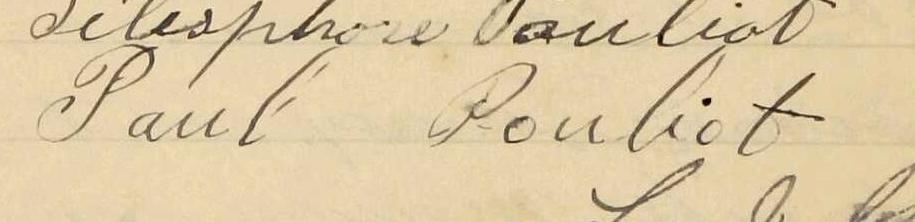 Télesphore Pouliot
Paul Pouliot